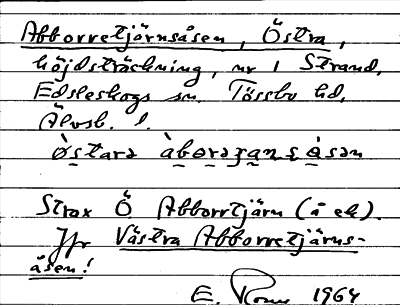 Abborretjärnsåsen, Östra,
höjdsträckning, nr 1 Strand,
Edsleskogs sn. Tössbo hd,
Älvsb. l.
òstara àborașanșåsan
Strax Ö Abborrtjärn (å ek).
Jfr Västra Abborretjärns-
åsen!
E. 1964